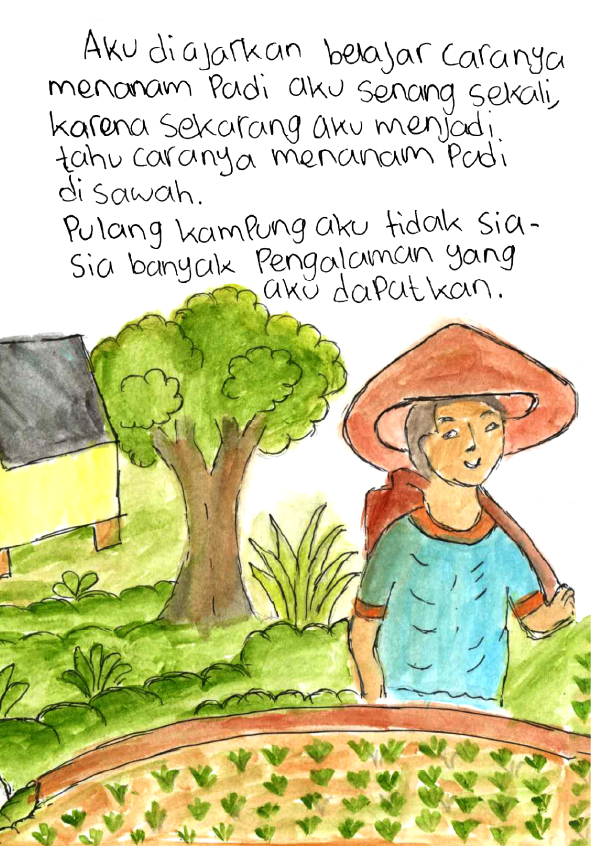 Aku diajarkan belajar caranya
menanam Padi aku senang sekali,
karena sekarang aku menjadi
tahu caranya menanam Padi
di sawah.
Pulang kampung aku tidak sia-
sia banyak Pengalaman yang
aku dapatkan.